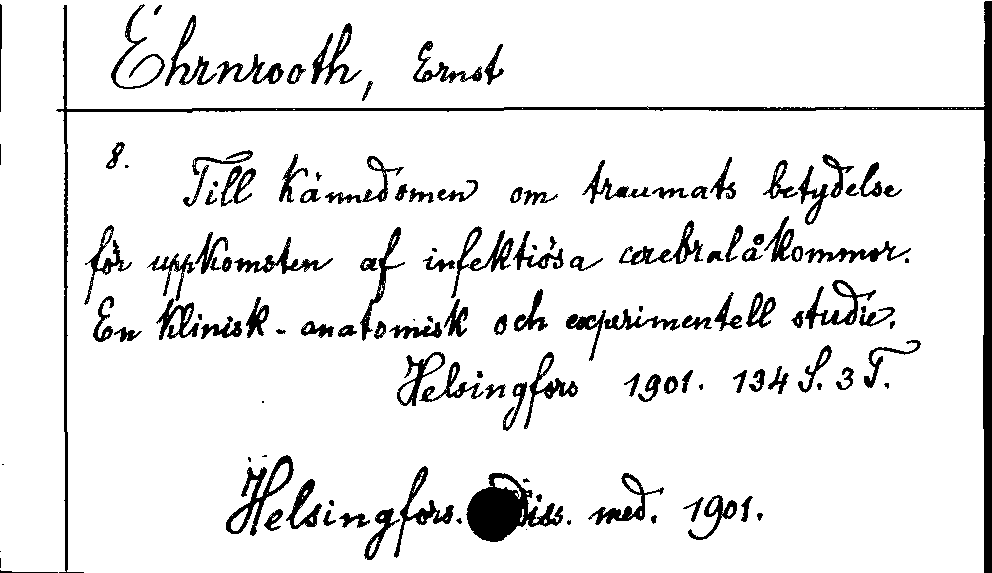 Ehrnrooth, Ernst
8.
Till kännedomen om traumats betydelse
för uppkomsten af infektiösa cerebralåkommor.
En klinisk-anatomisk och experimentell studie.
Helsingfors 1901. 134 S. 3 T.
Helsingfors. Diss. med. 1901.